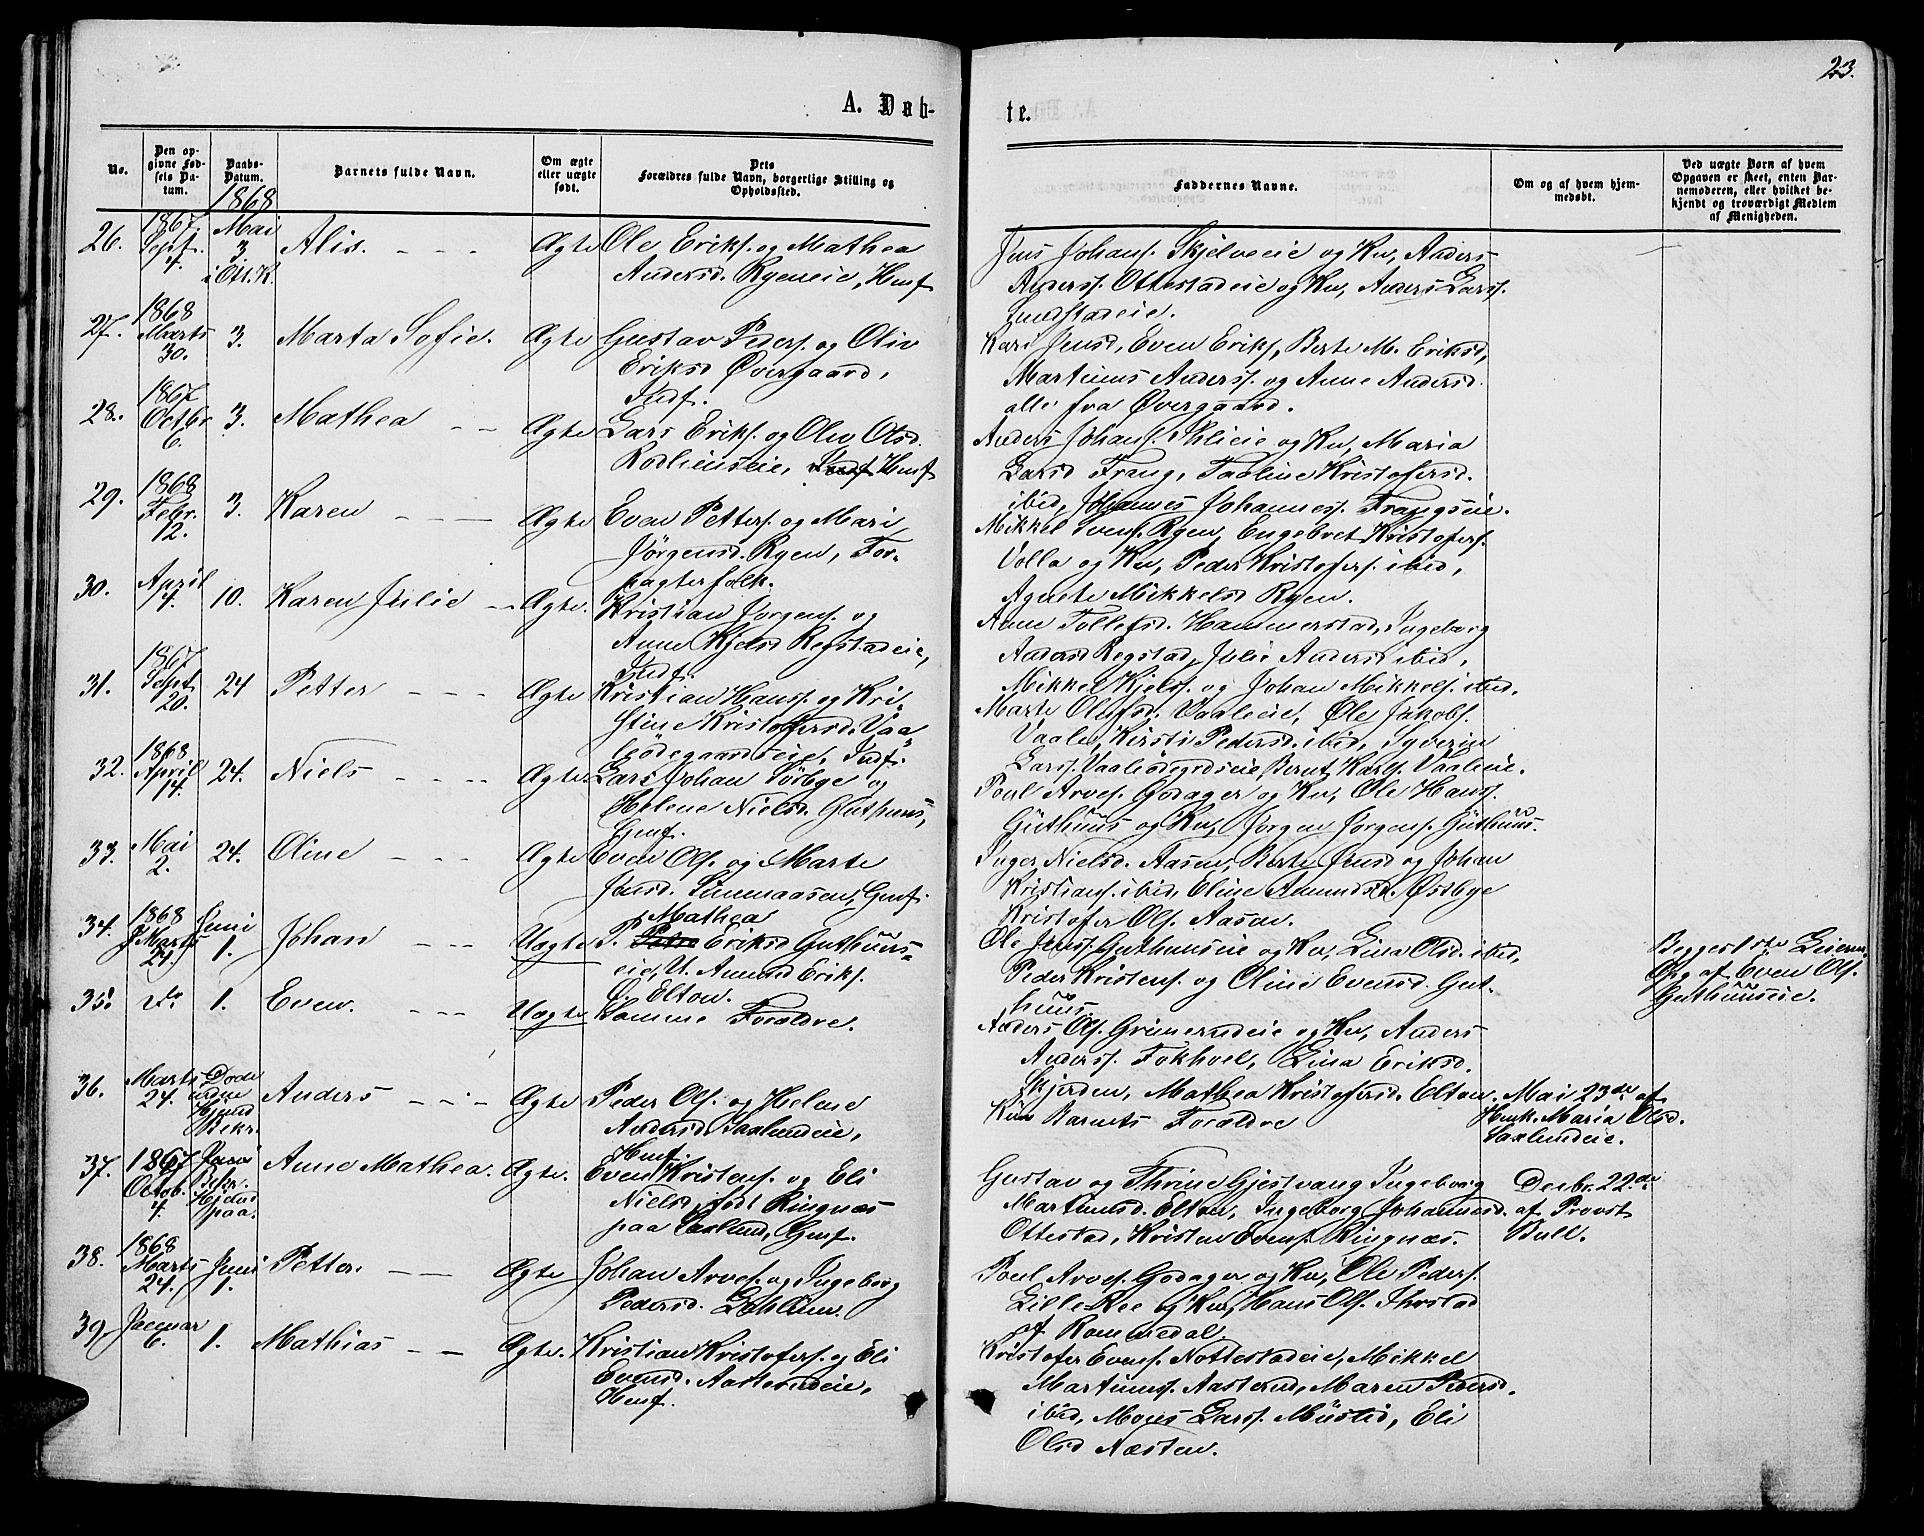 23.
A. Døb-
te.
No.
Den op-
givne Fød-
sels Da-
tum.
Daabs-
Datum.
Barnets fulde Navn.
Om ægte
eller uægte
født.
Dets
Forældres fulde Navn, borgerlige Stilling og
Opholdssted.
Faddernes Navne.
Om og af hvem hjem-
medøbt.
Ved uægte Børn af hvem
Opgaven er skeet, enten Bar-
nemoderen, eller hvilket be-
kjendt og troværdigt Medlem
af Menigheden.
1868
26. 1867 Sept. 4. Mai 3. i Ott. K. Alis. Ægte Ole Eriks. og Mathea
Andersd. Ryeneie, Husf.
Jens Johans. Skjelveeie og Ku, Anders
Anderss. Ottestadeie og Ku, Anders Larss.
27. 1868 Marts 30. 3. Marta Sofie. Ægte Gustav Peders. og Oliv
Eriksd Øvergaard,
Indf.
Kari Jensd, Even Eriks, Berte M. Eriksd,
Martinus Anderss. og Anne Andersd.
alle fra Øvergaard.
28. 1867 Octbr 6. 3. Mathea Ægte Lars Eriks. og Oliv Olsd.
Rodlienseie, Husf
Anders Johans. eie og Ku, Maria
Larsd Frang, Paoline Kristofersd.
ibid, Johannes Johanness. Frangseie.
29. 1868 Febr. 12. 3. Karen Ægte Even Petters. og Mari
Jørgensd. Ryen, For-
pagterfolk.
Mikkel Svens. Ryen, Engebret Kristofers.
Volla og Ku, Peder Kristofers. ibid,
Agnete Mikkelsd Ryen.
30. April 4. 10. Karen Julie Ægte. Kristian Jørgens. og
Anne Kjelsd Regstadeie,
Indf.
Anne Tollefsd. Hammerstad, Ingeborg
Andersd Regstad, Julie Andersd ibid,
Mikkel Kjels. og Johan Mikkels. ibid.
31. 1867 Sept. 20. 24 Petter Ægte Kristian Hanss. og Kri-
stine Kristofersd. Vaa-
leødegaardseie, Indf.
Marte Olufsd. Vaaleeie, Ole Jakobs.
Vaale, Kersti Pedersd. ibid, Syverine
Larss. Vaaleødegrdseie, Bernt Karls. Vaaleie.
32. 1868 April 14. 24. Niels Ægte Lars Johan Sørbye og
Helene Nielsd. Guthuus,
Gmf.
Poul Arves. Godager og Ku, Ole Hanss.
Guthuus og Ku, Jørgen Jørgens. Guthuus.
33. Mai 2. 24. Oline Ægte Even Ols. og Marte
Jensd. Linmaasen, Gmf.
Inger Nielsd. Aasen, Berte Jensd og Johan
Kristians. ibid, Eline Amundsd. Østbye
Kristofer Ols. Aasen.
34. 1868 Marts 24. Juni 1. Johan Uægte P. Mathea Eriksd Guthuus-
eie, U. Amund Eriks.
Ø. Elton.
Ole Jens. Guthuuseie og Ku, Lina Olsd. ibid,
Peder Kristens. og Oline Evensd. Gut-
huus.
Begges 1ste Leierm.
Opg af Even Ols.
Guthuuseie.
35. do 1. Even. Uægte Samme Forældre.
Anders Ols. Grimerudeie og Ku, Anders
Anderss. Fokhoel, Lina Eriksd.
Skjerden, Mathea Kristofersd. Elton.
36. Marts 24. Døde Hjemd Bekr. Anders Ægte Peder Ols. og Helene
Andersd. Saxlundeie,
Husf.
Kun Barnets Forældre
Mai 23de af
Husk. Maria Olsd.
Saxlundeie.
37. 1867 Octob. 4. Bekr. Hjemd paa. Anne Mathea. Ægte. Even Kristens. og Eli
Nielsd, født Ringnæs
paa Saxlund, Gmf.
Gustav og Thrine Gjestvang, Ingeborg
Martinusd. Elton, Ingeborg Johannesd.
Ottestad, Kristen Evens. Ringnæs.
Decbr. 22de
af Provst
Bull.
38. 1868 Marts 24. Juni 1. Petter. Ægte Johan Arves. og Ingeborg
Pedersd.
Poul Arves. Godager og Ku, Ole Peders.
Lille Ree og Ku, Hans Ols. Thostad
af Rommedal.
39. Januar 6. 1. Mathias Ægte. Kristian Kristofers. og Eli
Evensd. Aasterudeie,
Husf.
Kristofer Evens. Nottestadeie, Mikkel
Martinuss. Aasterud, Maren Pedersd.
ibid, Moses Larss. Mustid, Eli
Olsd Næsten.